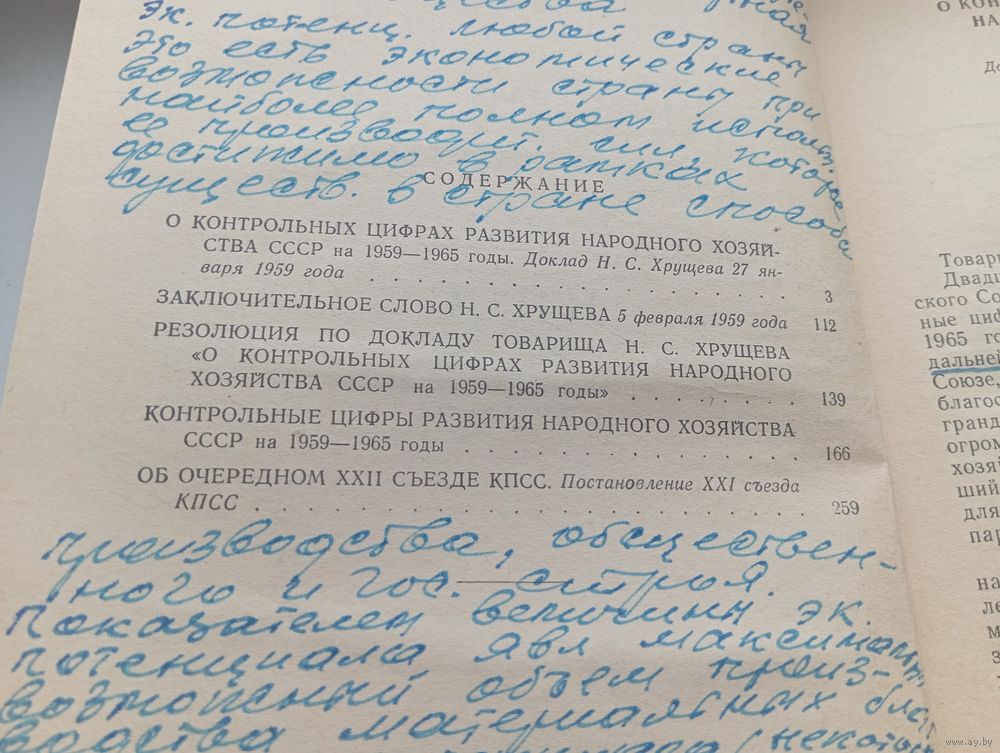 эк. потенц. любой страны
это есть экономические
возможности страны при
наиболее полном использ.
её производит. сил, которое
достижимо в рамках
существ. в стране способа
СОДЕРЖАНИЕ
О КОНТРОЛЬНЫХ ЦИФРАХ РАЗВИТИЯ НАРОДНОГО ХОЗЯЙ-
СТВА СССР на 1959—1965 годы. Доклад Н. С. Хрущева 27 ян-
варя 1959 года . . . . . . . . . . . . . . 3
ЗАКЛЮЧИТЕЛЬНОЕ СЛОВО Н. С. ХРУЩЕВА 5 февраля 1959 года 112
РЕЗОЛЮЦИЯ ПО ДОКЛАДУ ТОВАРИЩА Н. С. ХРУЩЕВА
«О КОНТРОЛЬНЫХ ЦИФРАХ РАЗВИТИЯ НАРОДНОГО
ХОЗЯЙСТВА СССР на 1959—1965 годы» . . . . . . . 139
КОНТРОЛЬНЫЕ ЦИФРЫ РАЗВИТИЯ НАРОДНОГО ХОЗЯЙСТВА
СССР на 1959—1965 годы . . . . . . . . . . . 166
ОБ ОЧЕРЕДНОМ XXII СЪЕЗДЕ КПСС. Постановление XXI съезда
КПСС . . . . . . . . . . . . . . . . . 259
производства, обществен-
ного и гос. строя.
Показателем величины эк.
потенциала явл максимальн
возможный объем произ-
водства материальных благ
О КОН
НА
До
Товари
Двадц
ского Со
ные циф
1965 го
дальней
Союзе,
благос
гранд
огром
хозяй
ший
для
пар
на
ле
м
з
www.ay.by